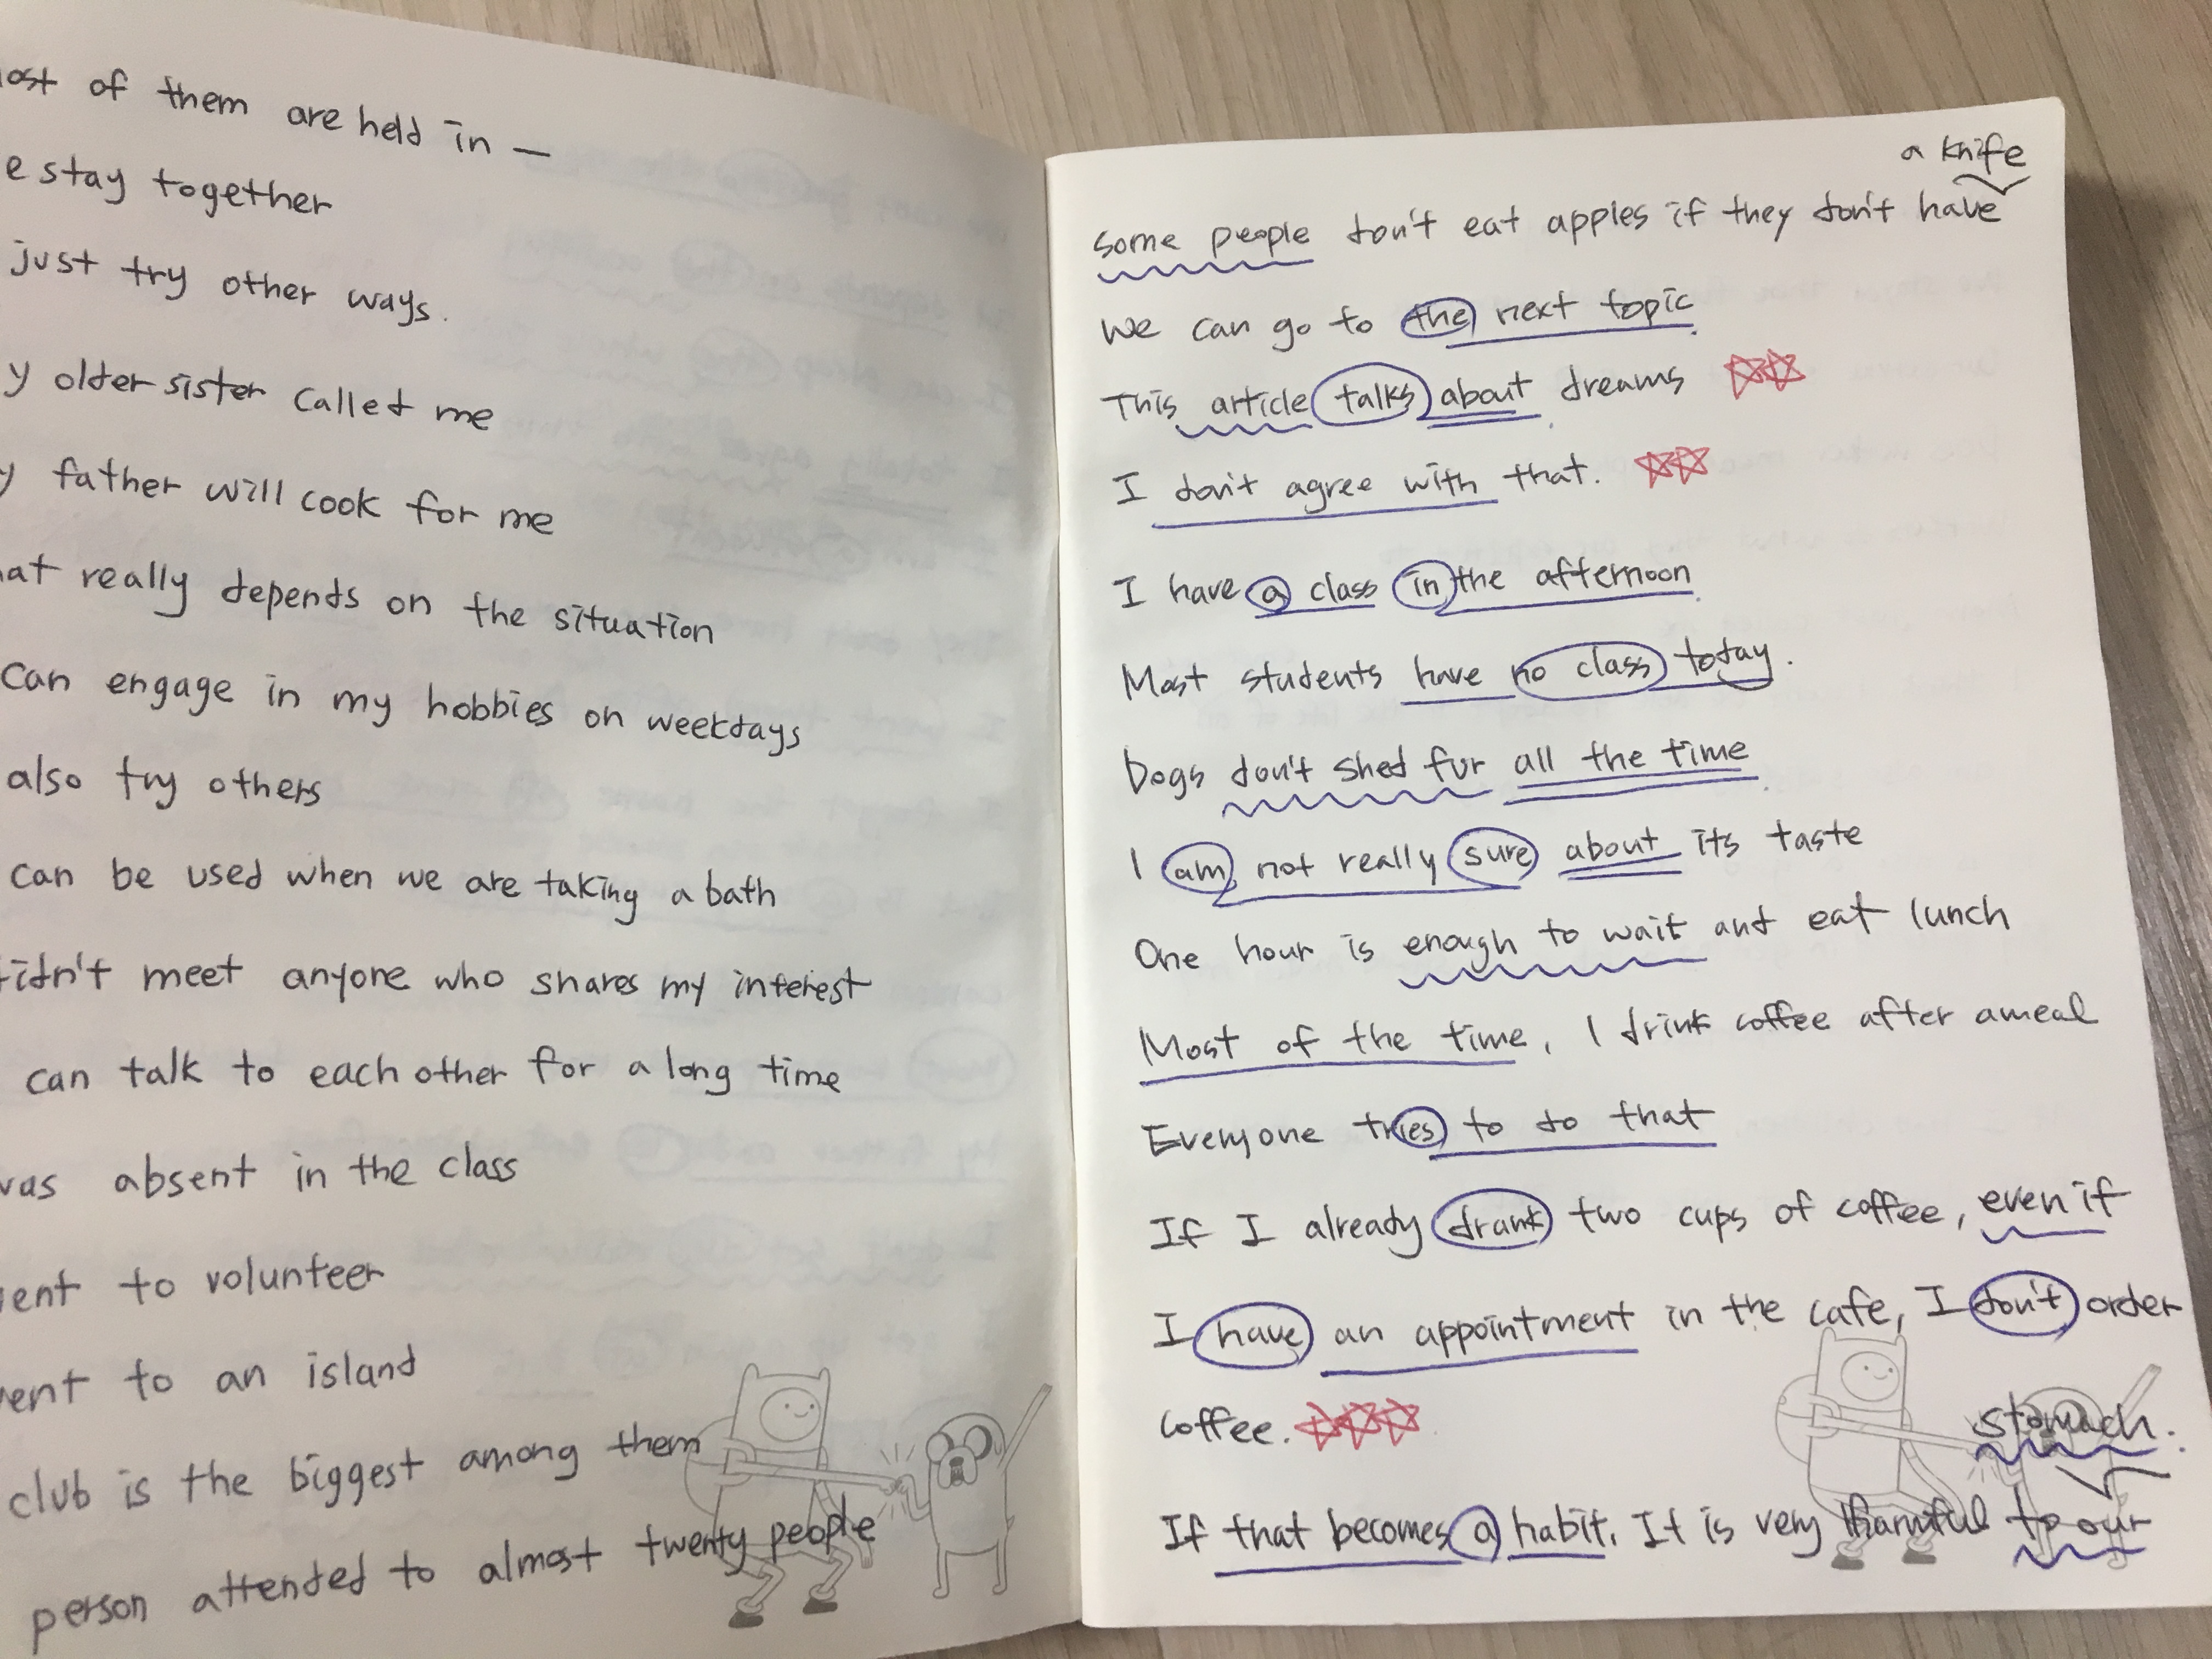 of them are held in —
stay together
just try other ways.
older sister called me
father will cook for me
really depends on the situation
can engage in my hobbies on weekdays
also try others
can be used when we are taking a bath
didn't meet anyone who shares my interest
can talk to each other for a long time
absent in the class
to volunteer
to an island
club is the biggest among them
person attended to almost twenty people
a knife
some people don't eat apples if they don't have
We can go to the next topic.
This article talks about dreams.
I don't agree with that.
I have a class in the afternoon.
Most students have no class today.
Dogs don't shed fur all the time.
I am not really sure about its taste
One hour is enough to wait and eat lunch
Most of the time, I drink coffee after a meal
Everyone tries to do that
If I already drank two cups of coffee, even if
I have an appointment in the cafe, I don't order
coffee.
stomach.
If that becomes a habit. It is very harmful to our